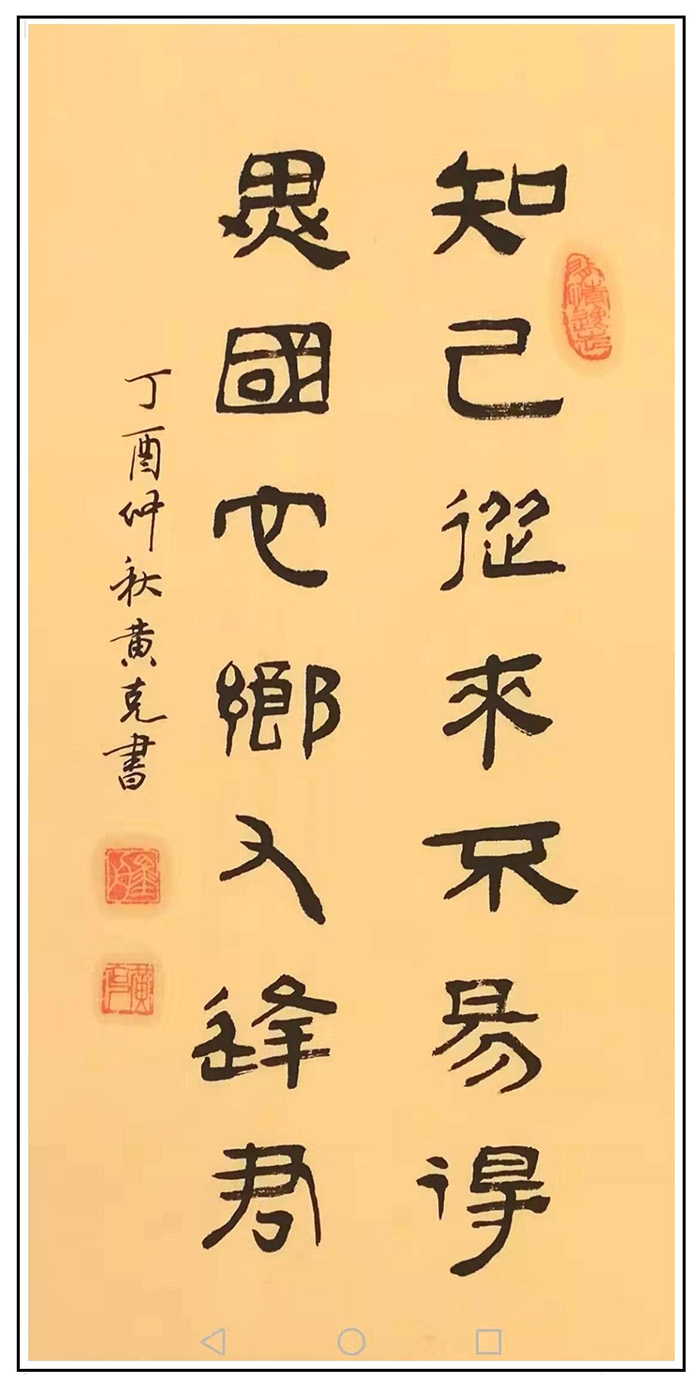 知己從來不易得
異國它鄉又逢君
丁酉仲秋黄克書